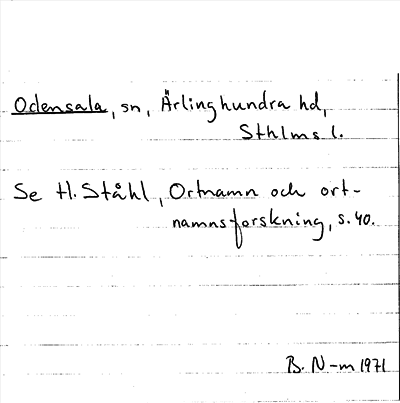 Odensala, sn, Ärlinghundra hd,
Sthlms l.
Se H. Ståhl, Ortnamn och ort-
namnsforskning, s. 40.
B. N-m 1971